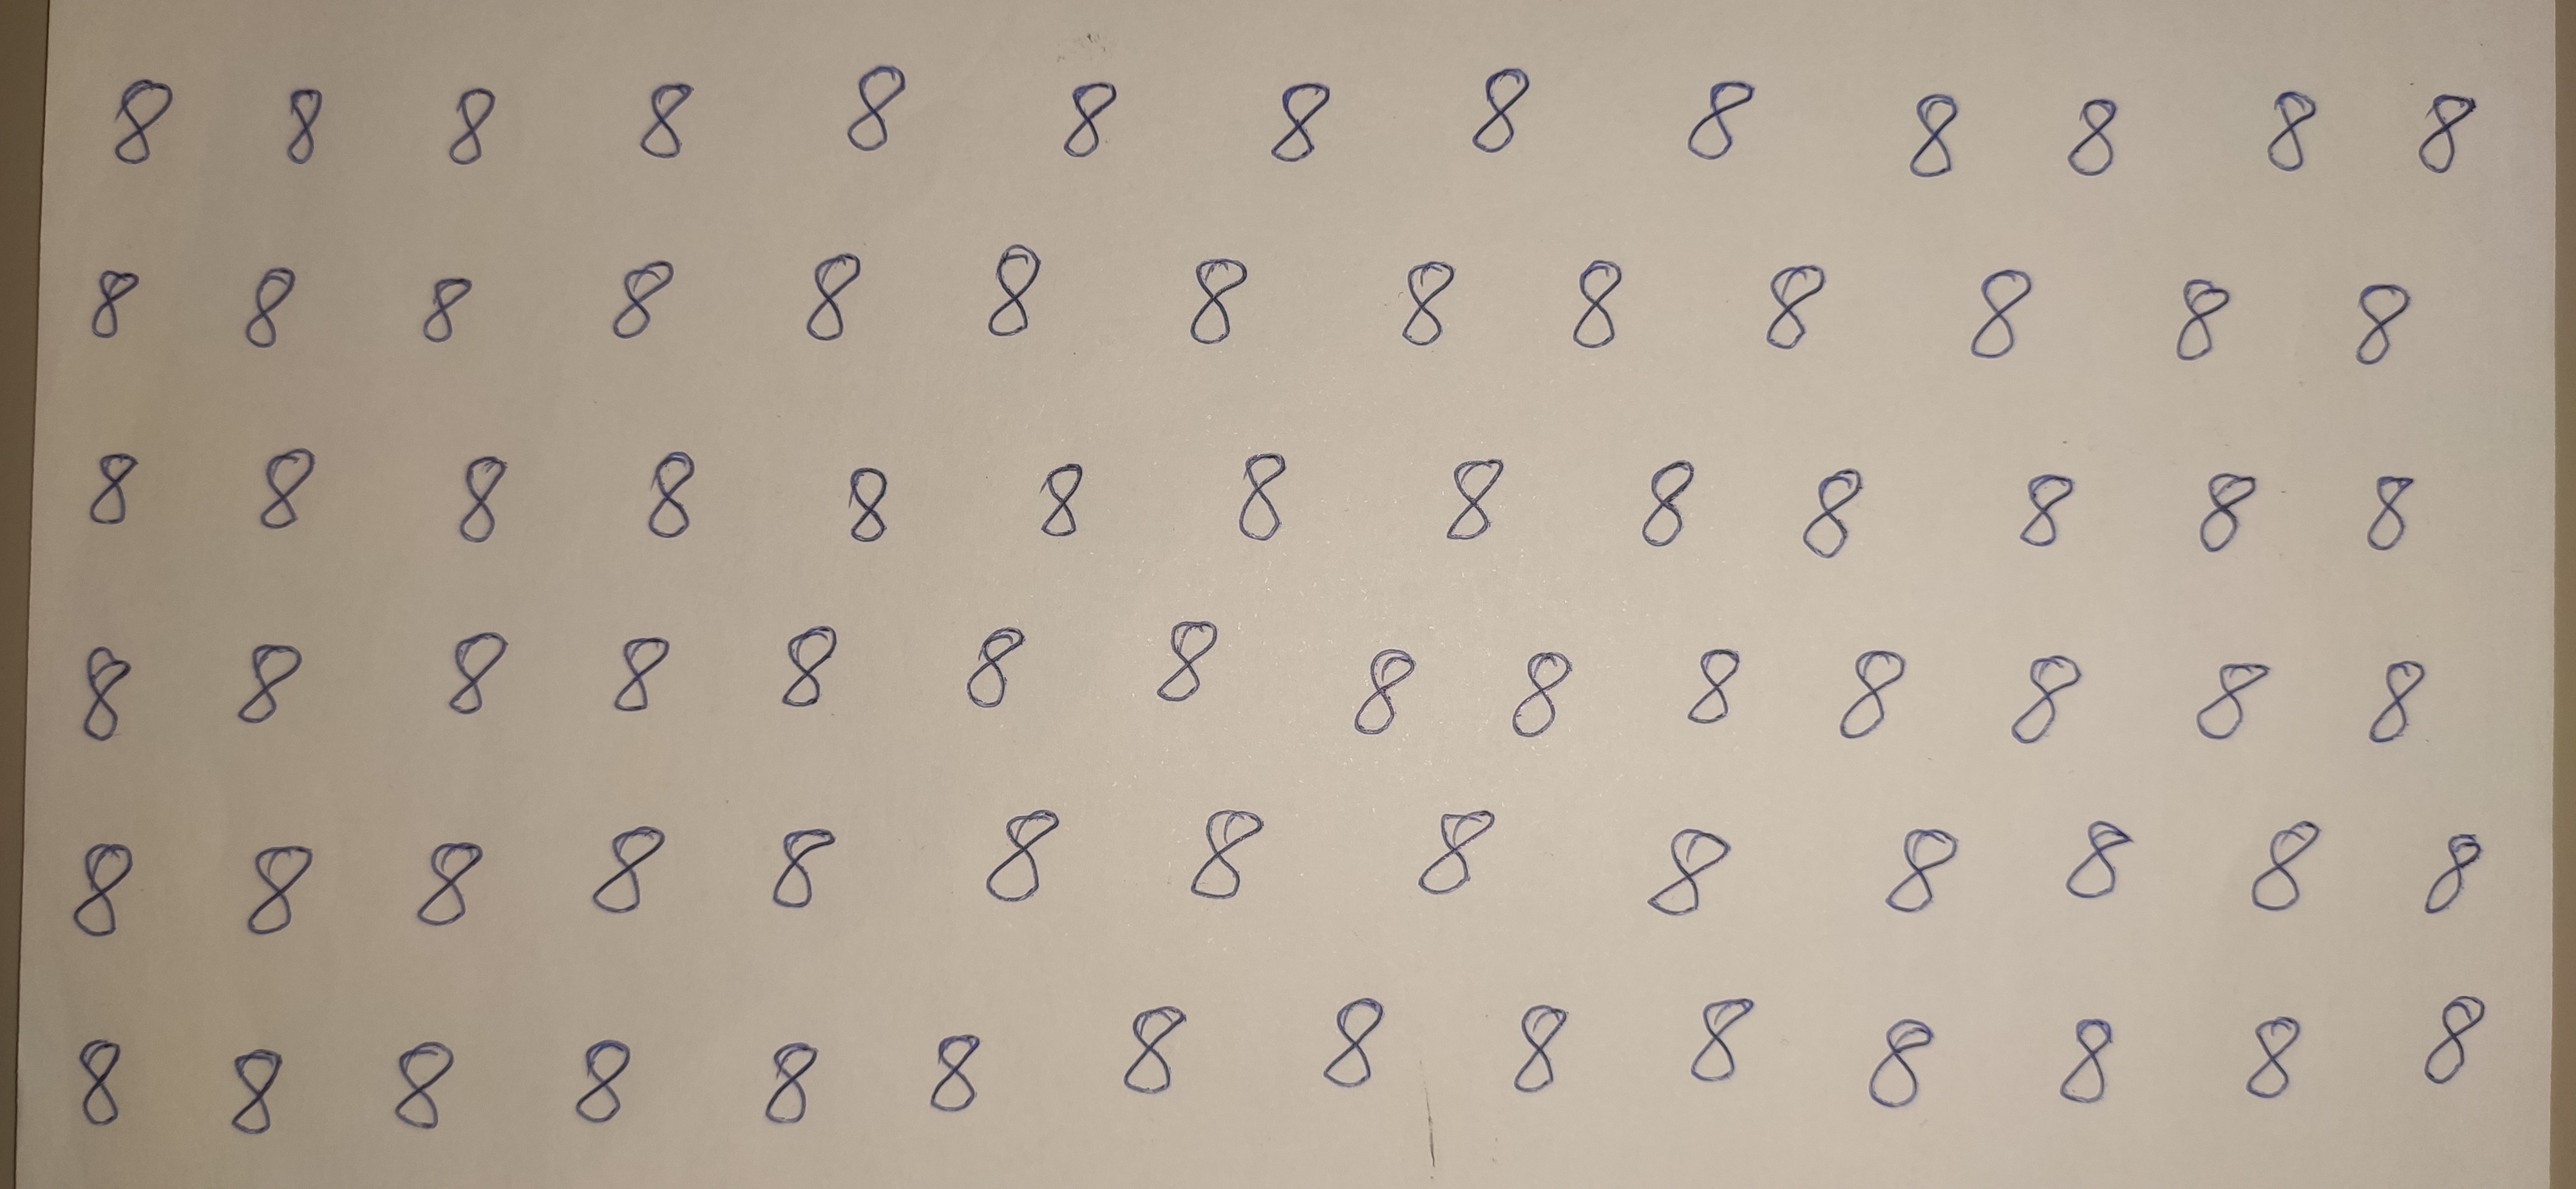 8 8 8 8 8 8 8 8 8 8 8 8 8
8 8 8 8 8 8 8 8 8 8 8 8 8
8 8 8 8 8 8 8 8 8 8 8 8 8
8 8 8 8 8 8 8 8 8 8 8 8 8 8
8 8 8 8 8 8 8 8 8 8 8 8 8
8 8 8 8 8 8 8 8 8 8 8 8 8 8